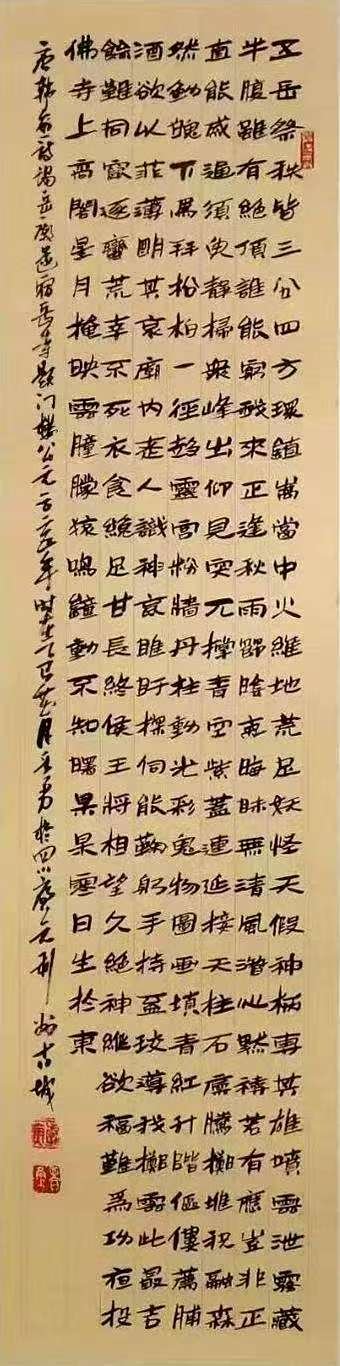 五岳祭秩皆三公四方環鎮嵩當中火維地荒足妖怪天假神柄專其雄噴雲泄霧藏
半腹雖有絕頂誰能窮我來正逢秋雨節陰氣晦昧無清風潛心默禱若有應豈非正
直能感通須臾靜掃衆峰出仰見突兀撐青空紫蓋連延接天柱石廩騰擲堆祝融森
然動魄下馬拜松柏一徑趨靈宮粉牆丹柱動光彩鬼物圖畫填青紅升階傴僂薦脯
酒欲以菲薄明其衷廟內老人識神意睢盱偵伺能鞠躬手持盃珓導我擲雲此最吉
餘難同竄逐蠻荒幸不死衣食纔足甘長終侯王將相望久絕神縱欲福難為功夜投
佛寺上高閣星月掩映雲朣朧猿鳴鐘動不知曙杲杲寒日生於東
唐韓愈詩謁岳廟遂宿岳寺題門樓公元二〇二五年時在乙巳月於四川廣元利州古城